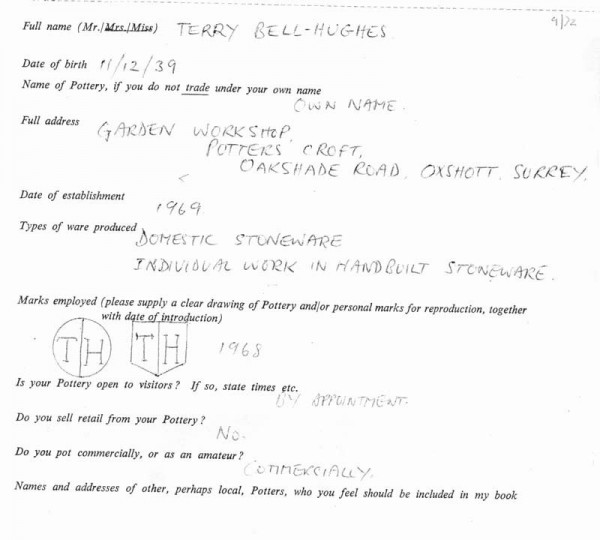 9/72
Full name (Mr./Mrs./Miss) TERRY BELL-HUGHES
Date of birth 11/12/39
Name of Pottery, if you do not trade under your own name
OWN NAME.
Full address GARDEN WORKSHOP,
POTTERS CROFT,
OAKSHADE ROAD, OXSHOTT. SURREY.
Date of establishment
1969.
Types of ware produced
DOMESTIC STONEWARE
INDIVIDUAL WORK IN HANDBUILT STONEWARE.
Marks employed (please supply a clear drawing of Pottery and/or personal marks for reproduction, together
with date of introduction)
TH TH 1968
Is your Pottery open to visitors? If so, state times etc.
BY APPOINTMENT.
Do you sell retail from your Pottery?
NO.
Do you pot commercially, or as an amateur?
COMMERCIALLY.
Names and addresses of other, perhaps local, Potters, who you feel should be included in my book